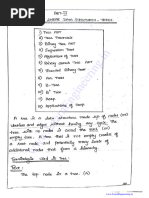 UNIT-IV
NON-LINEAR DATA STRUCTURES - TREES
1) Tree ADT
2) Tree Traversals
3) Binary Tree ADT
4) Expression Trees
5) Applications of Trees
6) Binary Search Tree ADT
7) Threaded Binary Tree
8) AVL Trees
9) B-Tree
10) B+ Tree
11) Heap
12) Applications of Heap
A tree is a data structure made up of nodes (or)
vertices and edges without having any cycle. The
tree with no nodes is called the null (or) empty
tree. A tree that is not empty consists of
a root node and potentially many levels of
additional nodes that form a hierarchy.
Terminologies used in Trees:
Root:
The top node in a tree.